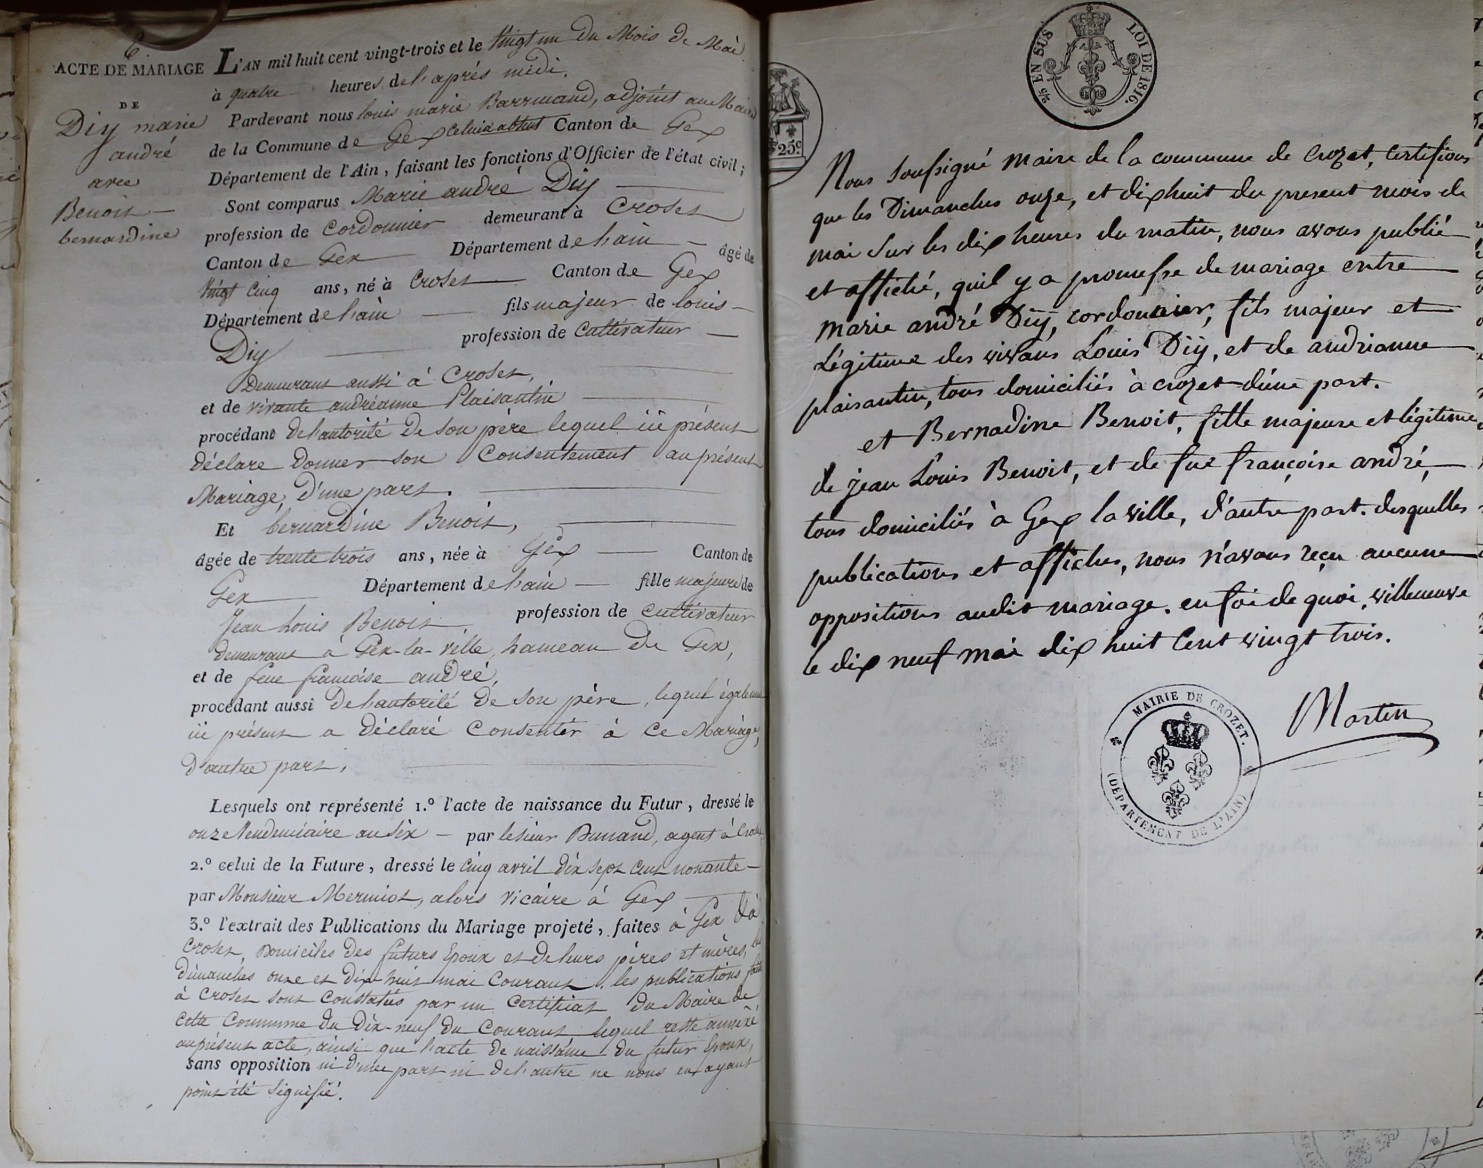 6
ACTE DE MARIAGE
DE
Diy marie
andré
avec
Benoit
bernardine
L'AN mil huit cent vingt-trois et le vingt un du Mois de Mai
à quatre heures de l'après midi.
Pardevant nous louis marie Barrmand, adjoint au Maire
de la Commune de Gex celui absent Canton de Gex
Département de l'Ain, faisant les fonctions d'Officier de l'état civil;
Sont comparus Marie andré Diy
profession de cordonnier demeurant à Croset
Canton de Gex Département de l'ain âgé de
vingt cinq ans, né à Croset Canton de Gex
Département de l'ain fils majeur de louis
Diy profession de cultivateur
Demeurant aussi à Croset,
et de vivante andréanne Plaisantin
procédant de l'autorité de son père lequel ici présent
déclare donner son consentement au présent
Mariage, d'une part.
Et bernardine Benoit,
âgée de trente trois ans, née à Gex Canton de
Gex Département de l'ain fille majeure de
Jean Louis Benoit, profession de cultivateur
demeurant à Gex-la-ville, hameau de Gex,
et de feue françoise andré,
procédant aussi de l'autorité de son père, lequel également
ici présent a déclaré consentir à ce Mariage,
d'autre part,
Lesquels ont représenté 1.º l'acte de naissance du Futur, dressé le
onze Vendemiaire an six par le sieur Dunand, agent à Croset
2.º celui de la Future, dressé le cinq avril dix sept cent nonante
par Monsieur Mermiot, alors vicaire à Gex
3.º l'extrait des Publications du Mariage projeté, faites à Gex & à
Croset, Domiciles des futurs Epoux et de leurs pères et mères, les
dimanches onze et dix-huit mai courant, les publications faites
à Croset sont constatées par un certificat du Maire de
cette Commune du dix-neuf du courant lequel reste annexé
au présent acte, ainsi que l'acte de naissance du futur Epoux,
sans opposition ni d'une part ni de l'autre ne nous en ayant
point été signifié.
25 c
2/5 EN SUS LOI DE 1816.
Nous soussigné maire de la commune de Crozet, certifions
que les Dimanches onze, et dix huit du present mois de
mai sur les dix heures du matin, nous avons publié
et affiché, qu'il y a promesse de mariage entre
Marie andré Diÿ, cordonnier, fils majeur et
Légitime des vivans Louis Diÿ, et de andrianne
plaisantin, tous domiciliés à crozet d'une part.
et Bernadine Benoit, fille majeure et légitime
de jean Louis Benoit, et de fue françoise andré,
tous domiciliés à Gex la ville, d'autre part. desquelles
publications et affiches, nous n'avons reçu aucune
oppositions audit mariage. en foi de quoi, villeneuve
le dix neuf mai dix huit cent vingt trois.
Martin
MAIRIE DE CROZET.
(DÉPARTEMENT DE L'AIN)